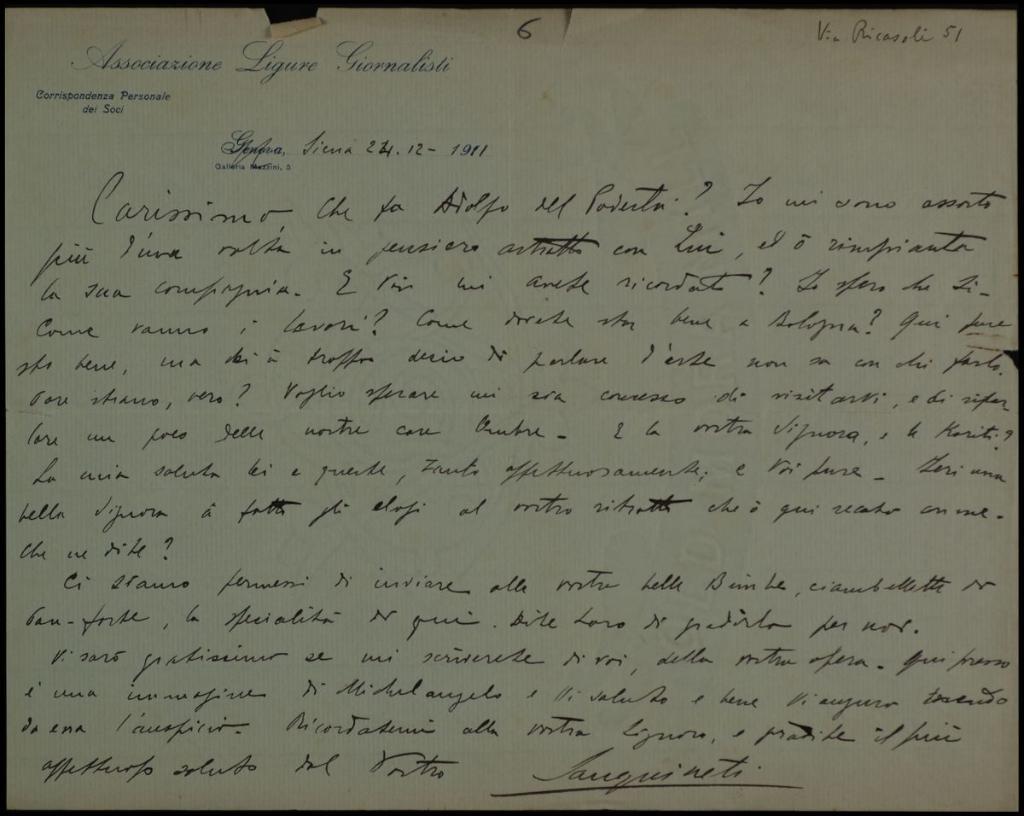 6
Via Ricasoli 51
Associazione Ligure Giornalisti
Corrispondenza Personale
dei Soci
Genova, Siena 24.12-1911
Galleria Mazzini, 5
Carissimo, Che fa Adolfo del Podestà? Io mi sono assorto
più d'una volta in pensiero astratto con Lui, ed ò rimpianta
la sua compagnia. E Voi mi avete ricordato? Io spero che Si-
Come vanno i lavori? Come dovete star bene a Bologna? Qui pure
sto bene, ma chi à troppo di parlare d'arte non sa con chi farlo.
Pare strano, vero? Voglio sperare mi sia concesso di visitarvi, e di ripar
lare un poco delle nostre care Ombre - E la vostra Signora, e le
La mia saluta lei e queste, tanto affettuosamente; e Voi pure - Ieri una
bella Signora à fatto gli elogi al vostro ritratto che ò qui recato con me -
Che ne dite?
Ci siamo permessi di inviare alle vostre belle Bimbe, ciambellette di
Pan-forte, la specialità di qui. Dite Loro di gradirla per noi.
Vi sarò gratissimo se mi scriverete di voi, della vostra opera - Qui presso
è una immagine di Michelangelo e Vi saluto e bene Vi auguro traendo
da essa l'auspicio - Ricordatemi alla vostra Signora, e gradite il più
affettuoso saluto dal Vostro Sanguineti